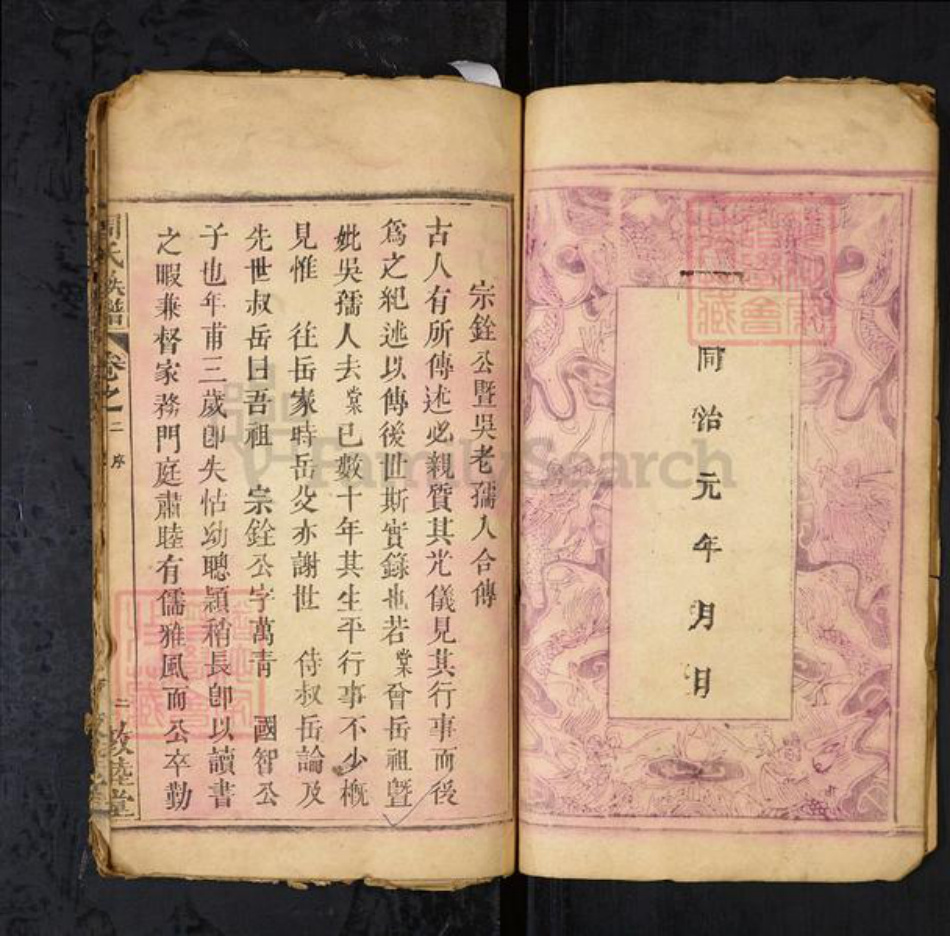 同治元年 月 日
宗銓公暨吳老孺人合傳
古人有所傳述必親質其光儀見其行事而後
爲之紀述以傳後世斯實錄也若棠曾岳祖暨
妣吳孺人去棠已數十年其生平行事不少概
見惟 往岳家時岳父亦謝世 侍叔岳論及
先世叔岳曰吾祖 宗銓公字萬青 國智公
子也年甫三歲即失怙幼聰穎稍長即以讀書
之暇兼督家務門庭肅睦有儒雅風而公卒勤
周氏族譜 卷之二 序 二 敦睦堂
FamilySearch